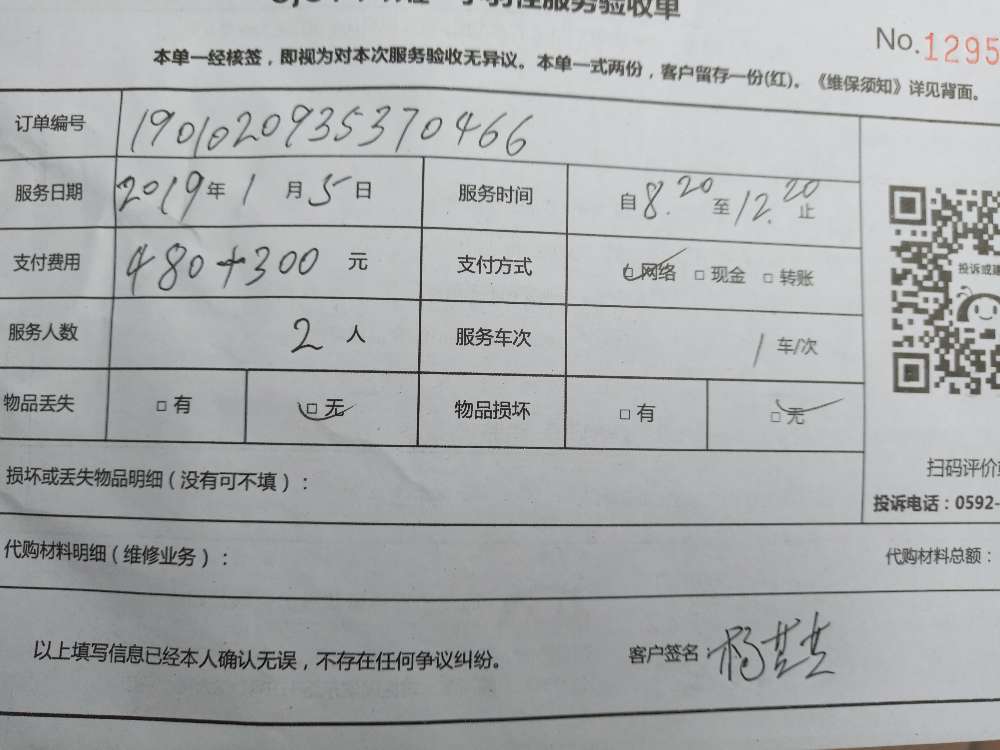 服务验收单
No.1295
本单一经核签，即视为对本次服务验收无异议。本单一式两份，客户留存一份(红)。《维保须知》详见背面。
订单编号 190102093537 0466
服务日期 2019年 1月 5日 服务时间 自8.20至12.20止
支付费用 480+300 元 支付方式 □网络 □现金 □转账
服务人数 2 人 服务车次 1 车/次
物品丢失 □有 □无 物品损坏 □有 □无
投诉或
损坏或丢失物品明细（没有可不填）：
扫码评价
投诉电话：0592-
代购材料明细（维修业务）： 代购材料总额：
以上填写信息已经本人确认无误，不存在任何争议纠纷。 客户签名：杨